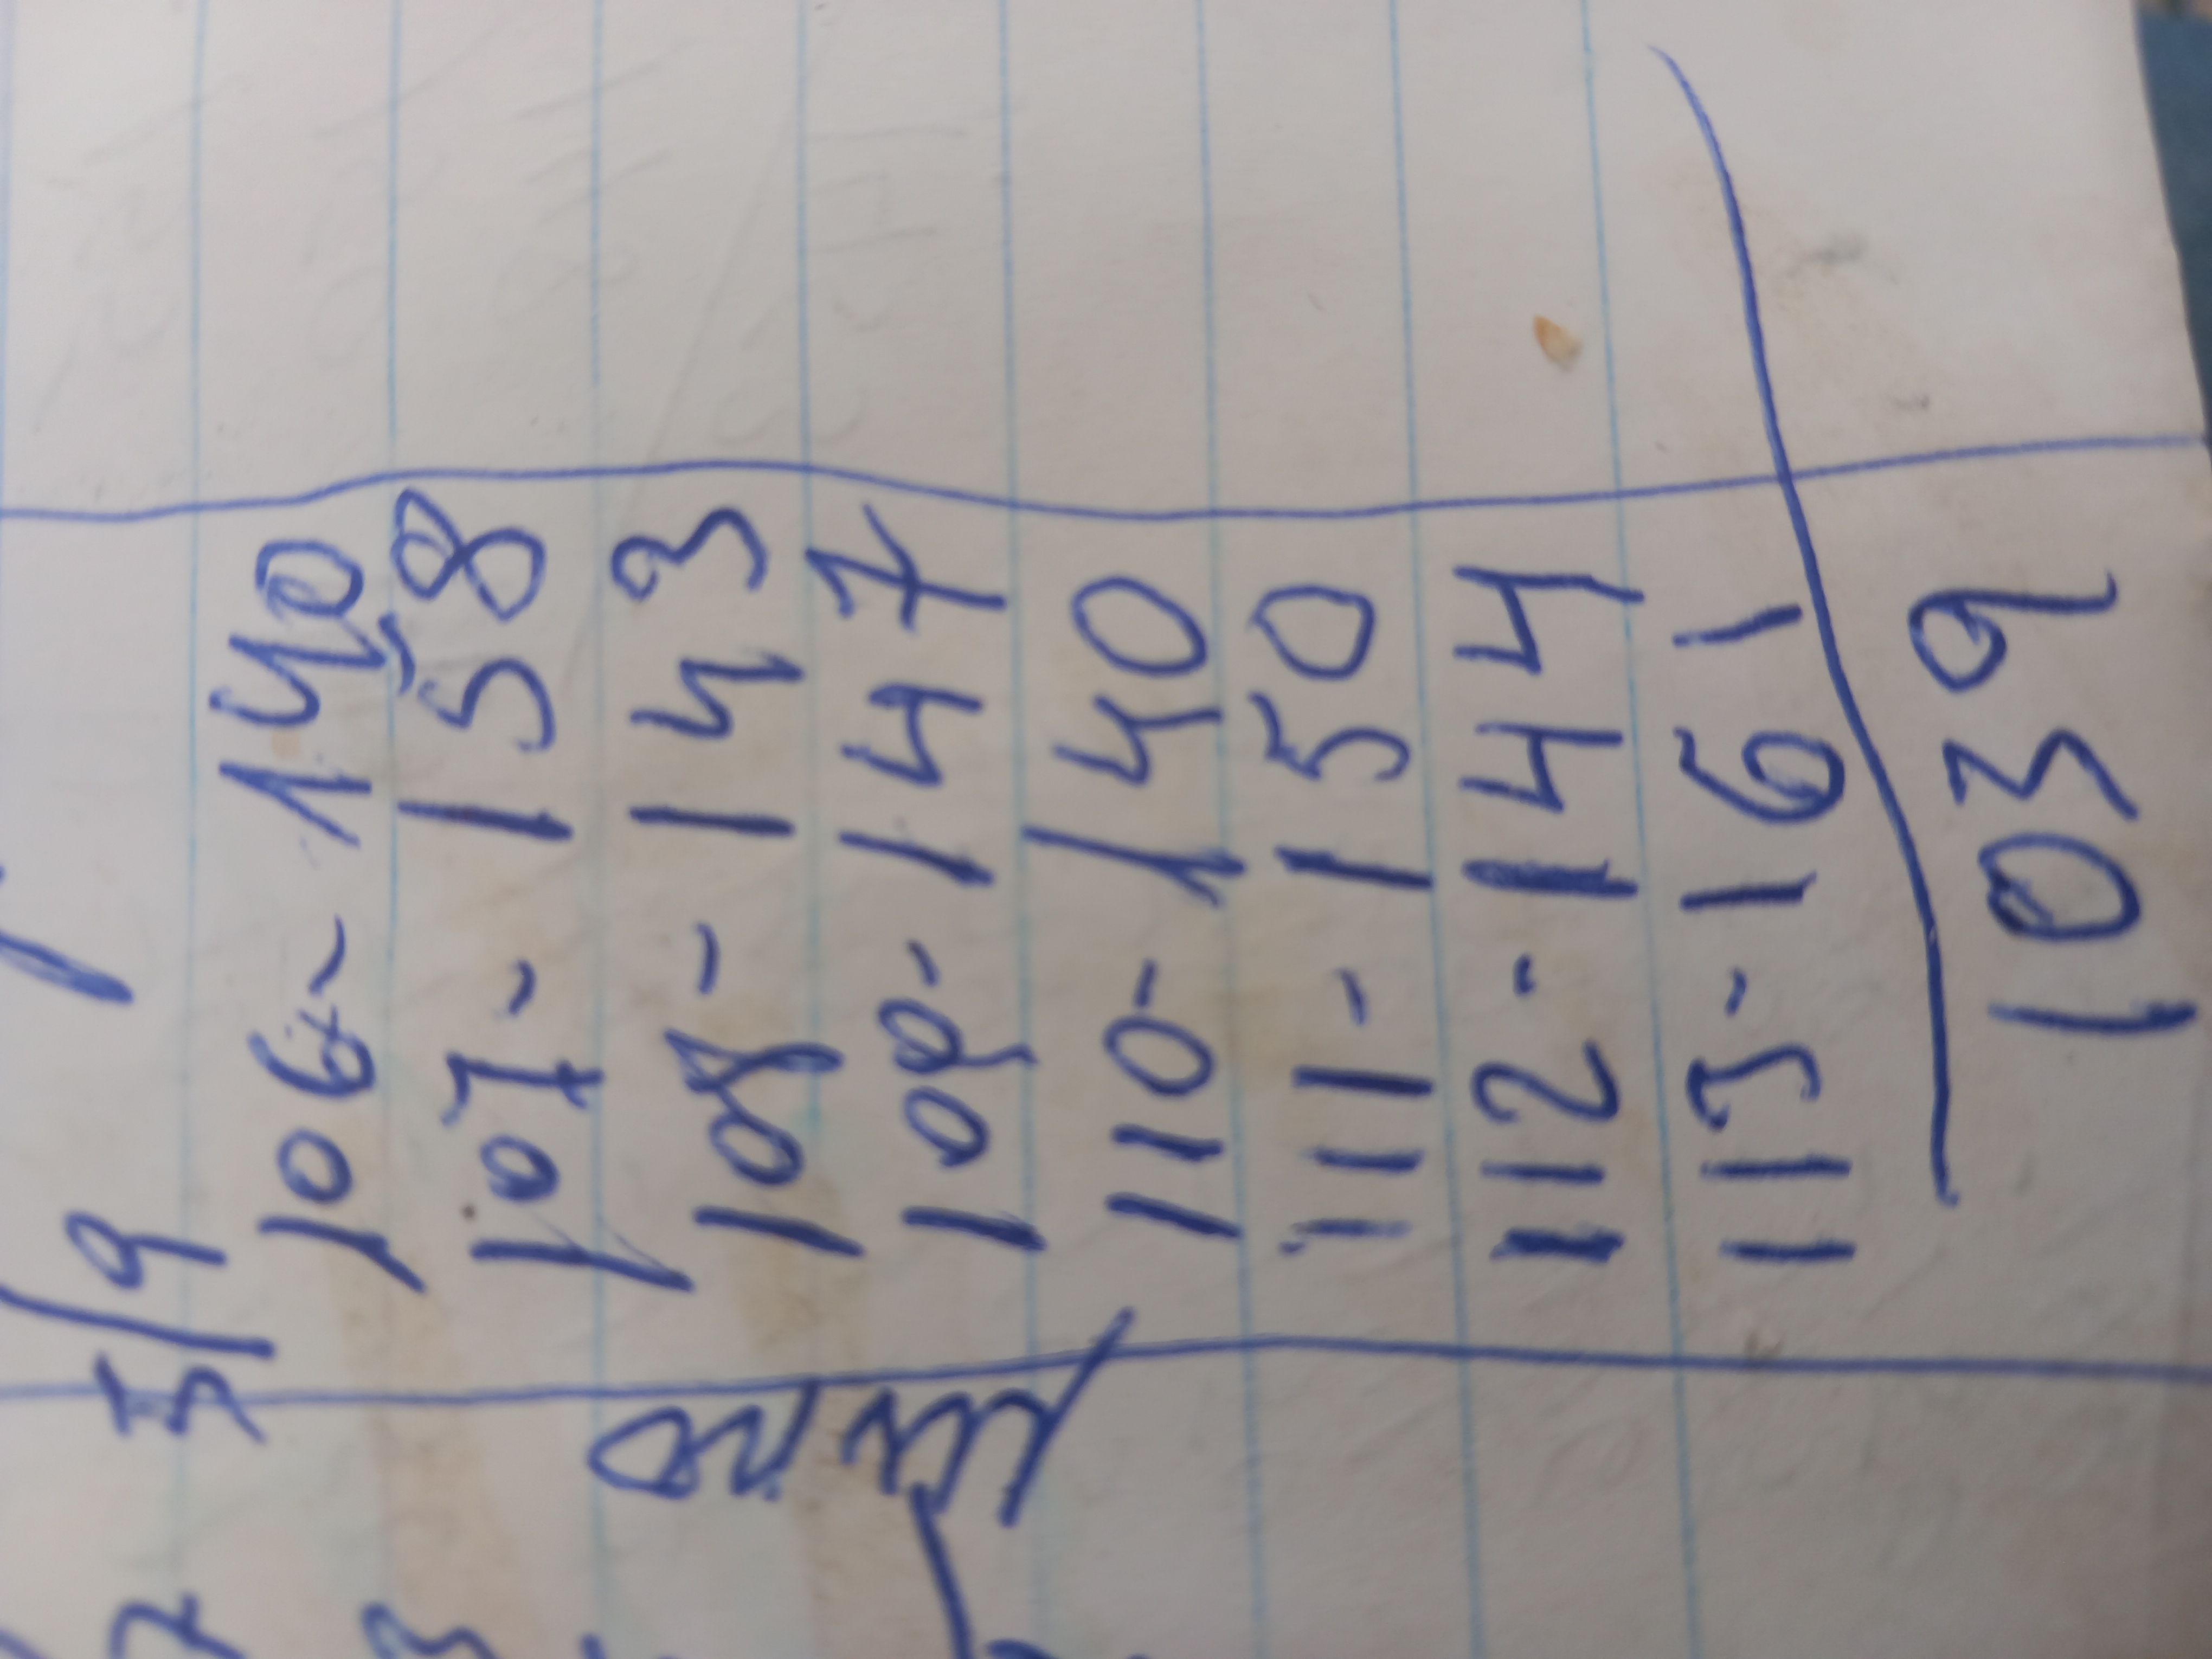 5/9
106 - 140
107 - 158
108 - 143
109 - 147
110 - 140
111 - 150
112 - 144
113 - 161
1039